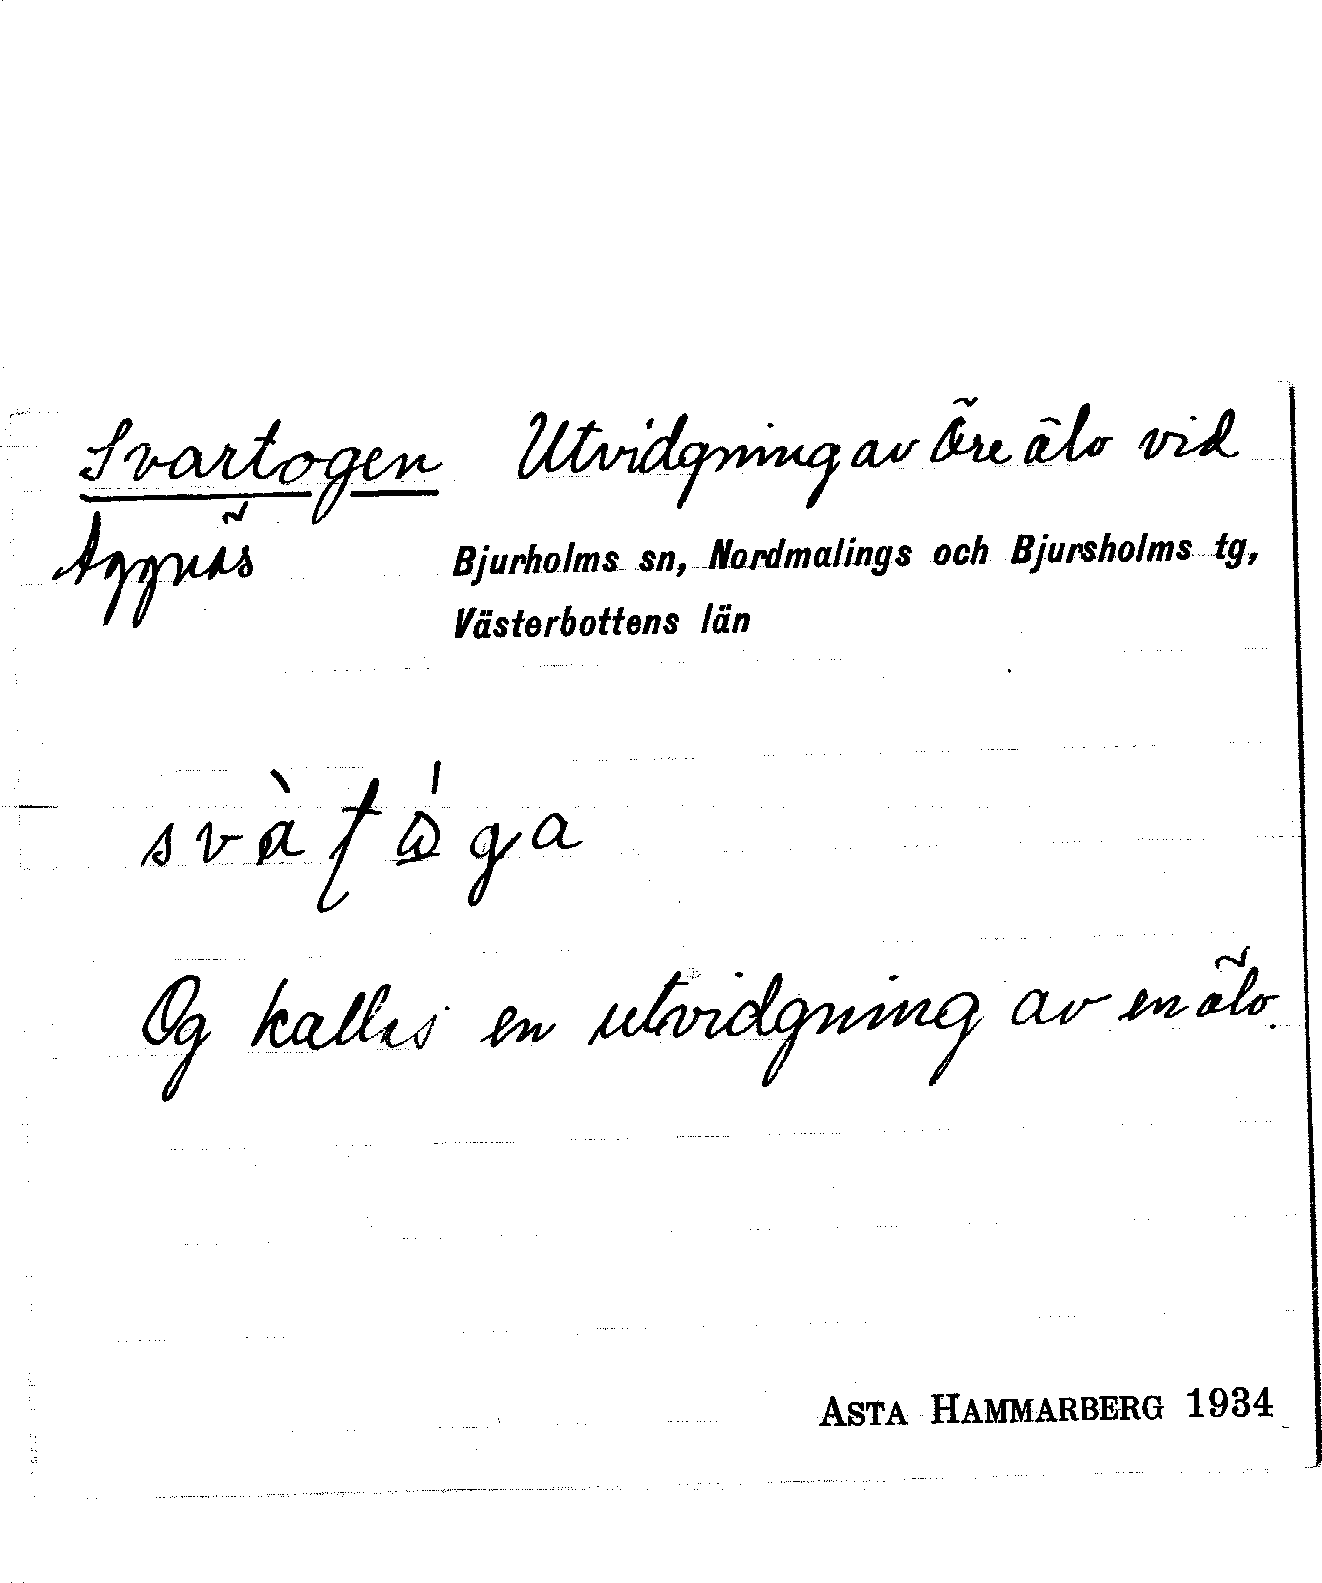 Svartogen Utvidgning av Öre älv vid
Aggnäs Bjurholms sn, Nordmalings och Bjursholms tg,
Västerbottens län
svàʈóga
Og kallas en utvidgning av en älv.
ASTA HAMMARBERG 1934